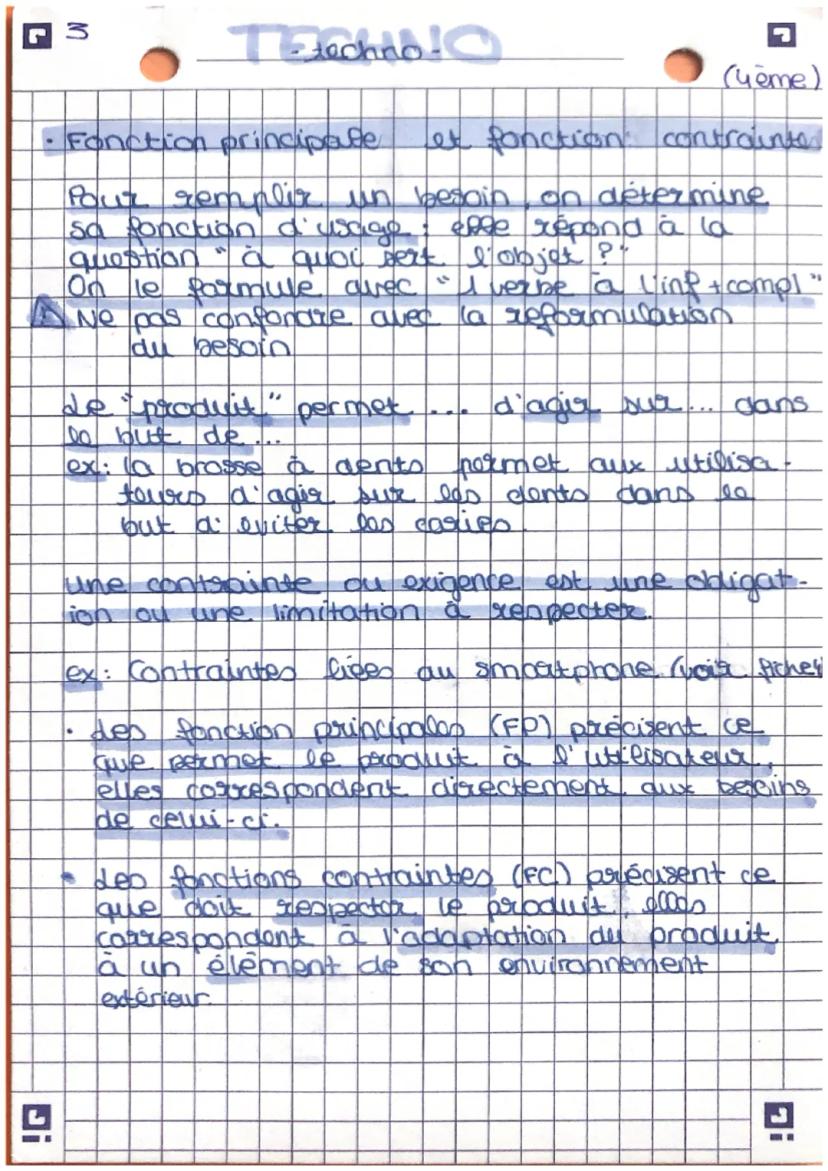 3
TECHNO
- techno -
(4ème)
• Fonction principale et fonction contraintes
Pour remplir un besoin, on détermine
sa fonction d'usage : elle répond à la
question "à quoi sert l'objet ?"
On le formule avec "1 verbe à l'inf + compl"
⚠ Ne pas confondre avec la reformulation
du besoin
Le "produit" permet ... d'agir sur... dans
le but de ...
ex: la brosse à dents permet aux utilisa-
teurs d'agir sur les dents dans le
but d'éviter les caries.
une contrainte ou exigence est une obligat-
ion ou une limitation à respecter.
ex: Contraintes liées au smartphone (voir fiches
• Les fonction principales (FP) précisent ce
que permet le produit à l'utilisateur,
elles correspondent directement aux besoins
de celui-ci.
• Les fonctions contraintes (FC) précisent ce
que doit respecter le produit, elles
correspondent à l'adaptation du produit
à un élément de son environnement
extérieur.